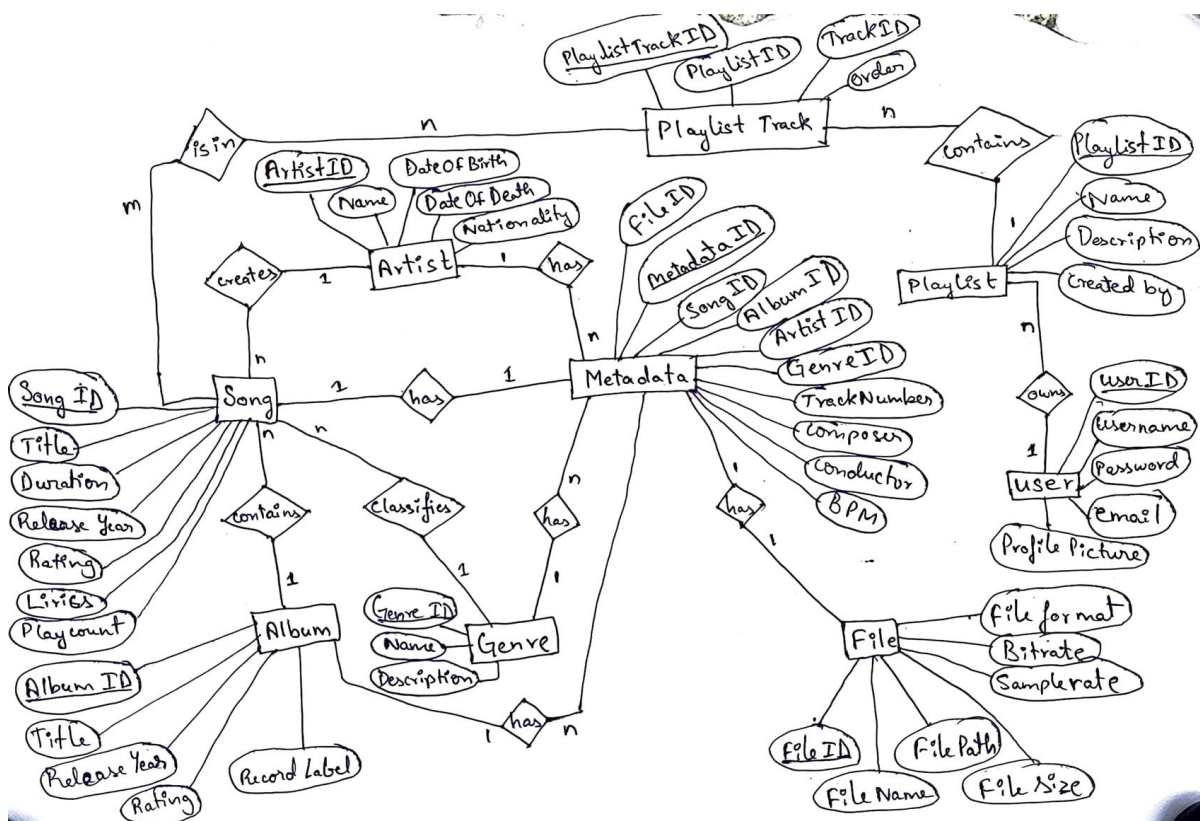 PlaylistTrackID
PlaylistID
TrackID
order
Playlist Track
n
n
is in
contains
m
1
ArtistID
Name
DateOfBirth
Date Of Death
Nationality
Artist
1
1
creates
has
n
n
FileID
MetadataID
Song ID
Album ID
Artist ID
GenreID
TrackNumber
composer
conductor
BPM
Metadata
Playlist ID
Name
Description
Created by
Playlist
n
owns
1
userID
username
Password
email
Profile Picture
user
Song
1
has
1
Song ID
Title
Duration
Release Year
Rating
Liriss
Playcount
n
n
contains
classifies
1
1
n
has
1
1
has
1
Album
Album ID
Title
Release Year
Rating
Record Label
Genre ID
Name
Description
Genre
1
has
n
File
File format
Bitrate
Samplerate
File ID
File Name
File Path
File Size